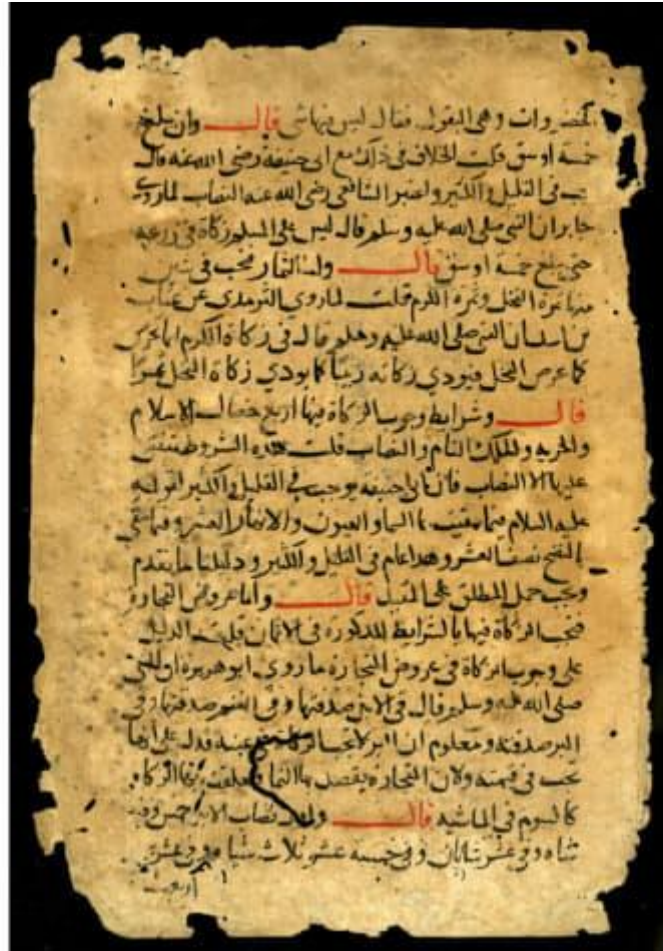 الخضروات وهي البقول فقال ليس فيها شي قال وان يبلغ
خمسة اوسق قلت الخلاف في ذلك مع ابي حنيفة رضي الله عنه قال
يجب في القليل والكثير واعتبر الشافعي رضي الله عنه النصاب لما روى
جابر ان النبي صلى الله عليه وسلم قال ليس على المسلم زكاة في زرعه
حتى يبلغ خمسة اوسق قال واما الثمار فتجب في شيئين
منها ثمرة النخل وثمرة الكرم قلت لما روي الترمذي عن عتاب
بن اسيد ان النبي صلى الله عليه وسلم قال في زكاة الكرم انها تخرص
كما تخرص النخل فيودي زكاته زبيبا كما يودي زكاة النخل تمرا
قال وشرايط وجوب الزكاة فيها اربع خصال الاسلام
والحرية والملك التام والنصاب قلت هذه الشروط متفق
عليها الا النصاب فان ابا حنيفة يوجب في القليل والكثير لقوله
عليه السلام فيما سقت السما والعيون والانهار العشر وفيما سقي
بالنضح نصف العشر وهذا عام في القليل والكثير ودليلنا ما تقدم
ويجب حمل المطلق على المقيد قال واما عروض التجارة
فتجب الزكاة فيها بالشرايط المذكورة في الاثمان قلت الدليل
على وجوب الزكاة في عروض التجارة ما روى ابو هريرة ان النبي
صلى الله عليه وسلم قال في الابل صدقتها وفي الغنم صدقتها وفي
البز صدقته ومعلوم ان البز لا تجب الزكاة في عينه فدل على انها
تجب في قيمته ولان التجارة يقصد بها النما فتعلقت بها الزكاة
كالسوم في الماشيه قال واول نصاب الابل خمس وفيه
شاة وفي عشر شاتان وفي خمسة عشر ثلاث شياه وفي عشرين
اربع